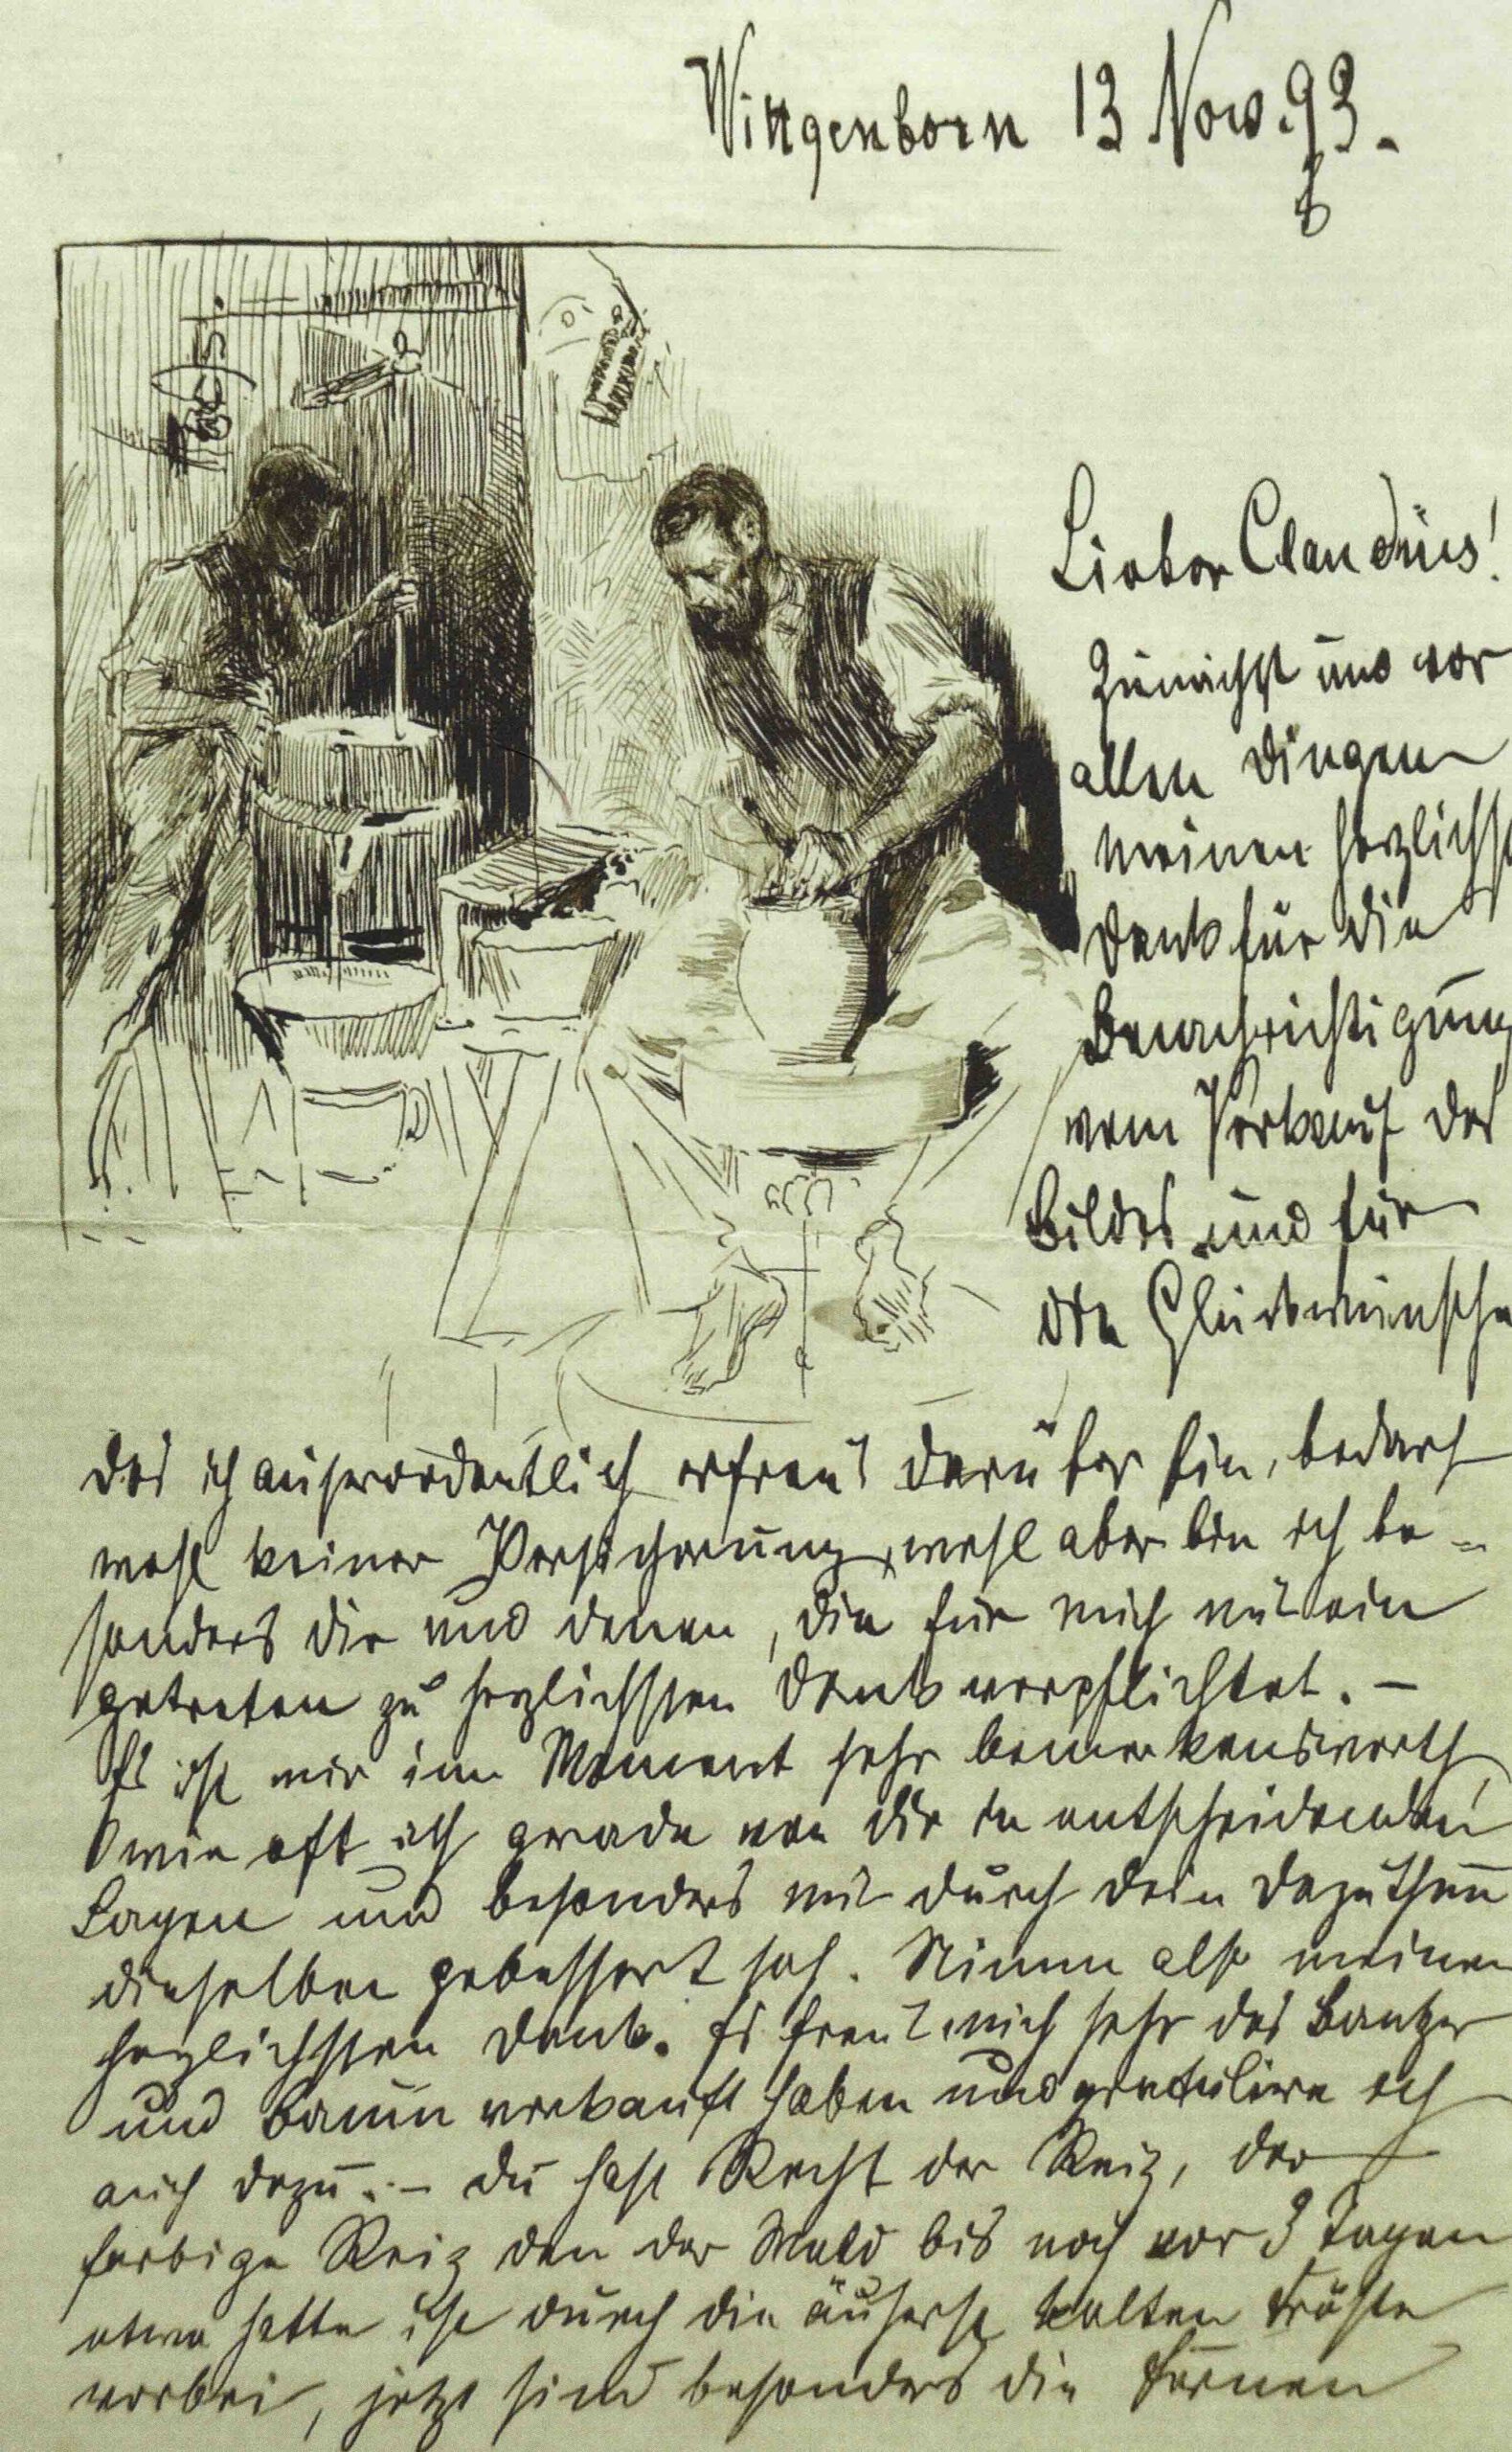 Wittgenborn 13 Nov. 93.
Lieber Claudius!
Zunächst und vor
allen Dingen
meinen herzlichst
Dank für die
Benachrichtigung
vom Verkauf des
Bildes und für
die Glückwünsche
das ich auserordentlich erfreut darüber bin, bedarf
wohl keiner Versicherung, wohl aber bin ich be-
sonders dir und denen, die für mich mit ein
getreten zu herzlichsten Dank verpflichtet. –
Es ist mir im Moment sehr bemerkenswerth,
wie oft ich grade von dir in entscheidenden
Lagen und besonders mit durch dein Dazuthun
dieselben gebessert sah. Nimm also meinen
herzlichsten Dank. Es freut mich sehr das Bantzer
und Baum verkauft haben und gratulire ich
auch dazu. – Du hast Recht der Reiz, der
farbige Reiz den der Wald bis noch vor 3 Tagen
etwa hatte ist durch die äuserst kalten Fröste
vorbei, jetzt sind besonders die Fernen